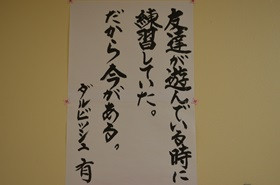 友達が遊んでいる時に
練習していた。
だから今がある。
ダルビッシュ 有